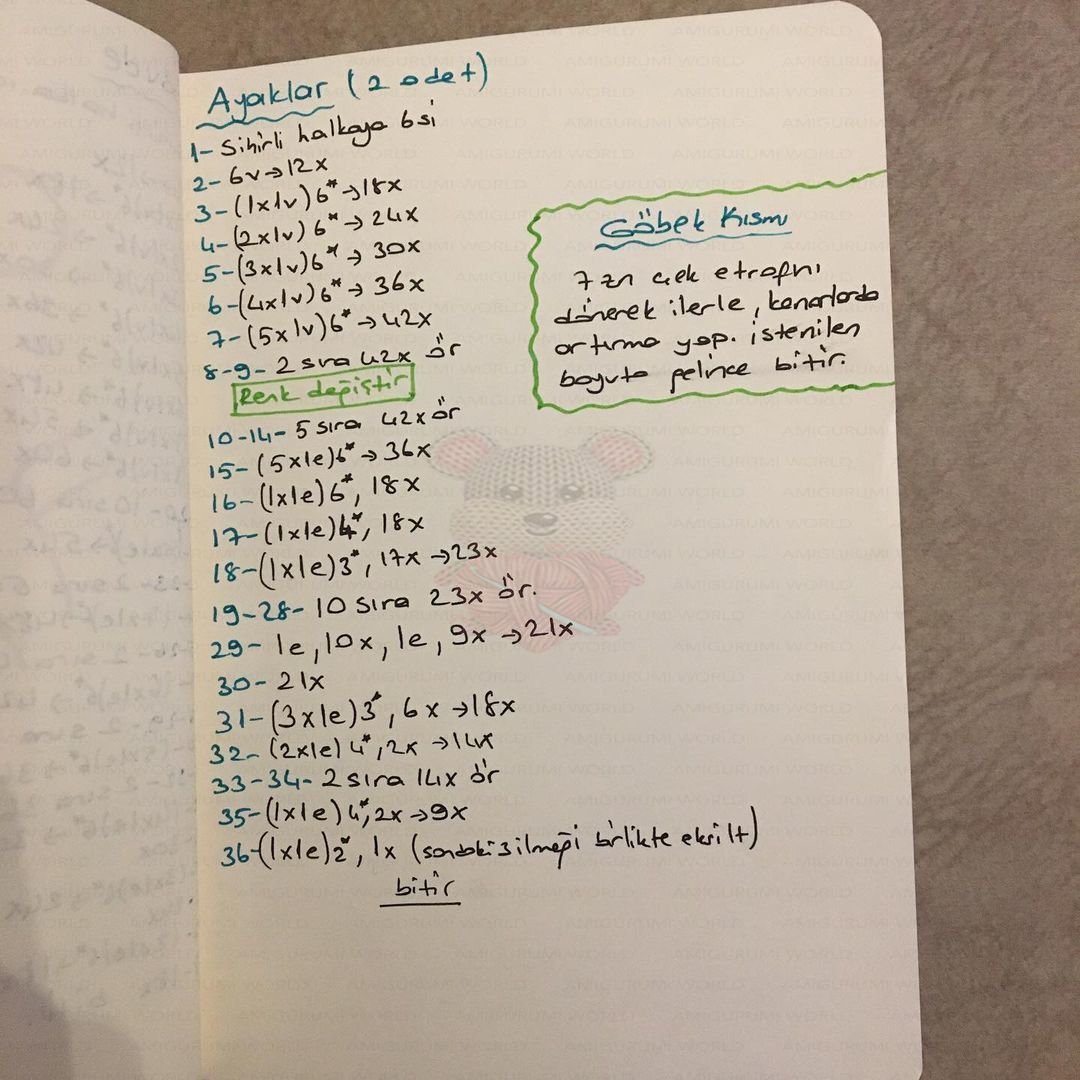 Ayaklar (2 adet)
1- Sihirli halkaya 6 si
2- 6v→12x
3- (1x1v)6*→18x
4- (2x1v)6*→24x
5- (3x1v)6*→30x
6- (4x1v)6*→36x
7- (5x1v)6*→42x
8-9- 2 sıra 42x ör
Renk değiştir
10-14- 5 sıra 42x ör
15- (5x1e)6*→36x
16- (1x1e)6*, 18x
17- (1x1e)4*, 18x
18- (1x1e)3*, 17x→23x
19-28- 10 sıra 23x ör.
29- 1e, 10x, 1e, 9x→21x
30- 21x
31- (3x1e)3*, 6x→18x
32- (2x1e)4*, 2x→14x
33-34- 2 sıra 14x ör
35- (1x1e)4*, 2x→9x
36- (1x1e)2*, 1x (sondaki 3 ilmeği birlikte eksilt)
bitir
Göbek Kısmı
7 zn çek etrafnı
dönerek ilerle, kenarlarda
artırma yap. istenilen
boyuta gelince bitir.
AMIGURUMI WORLD